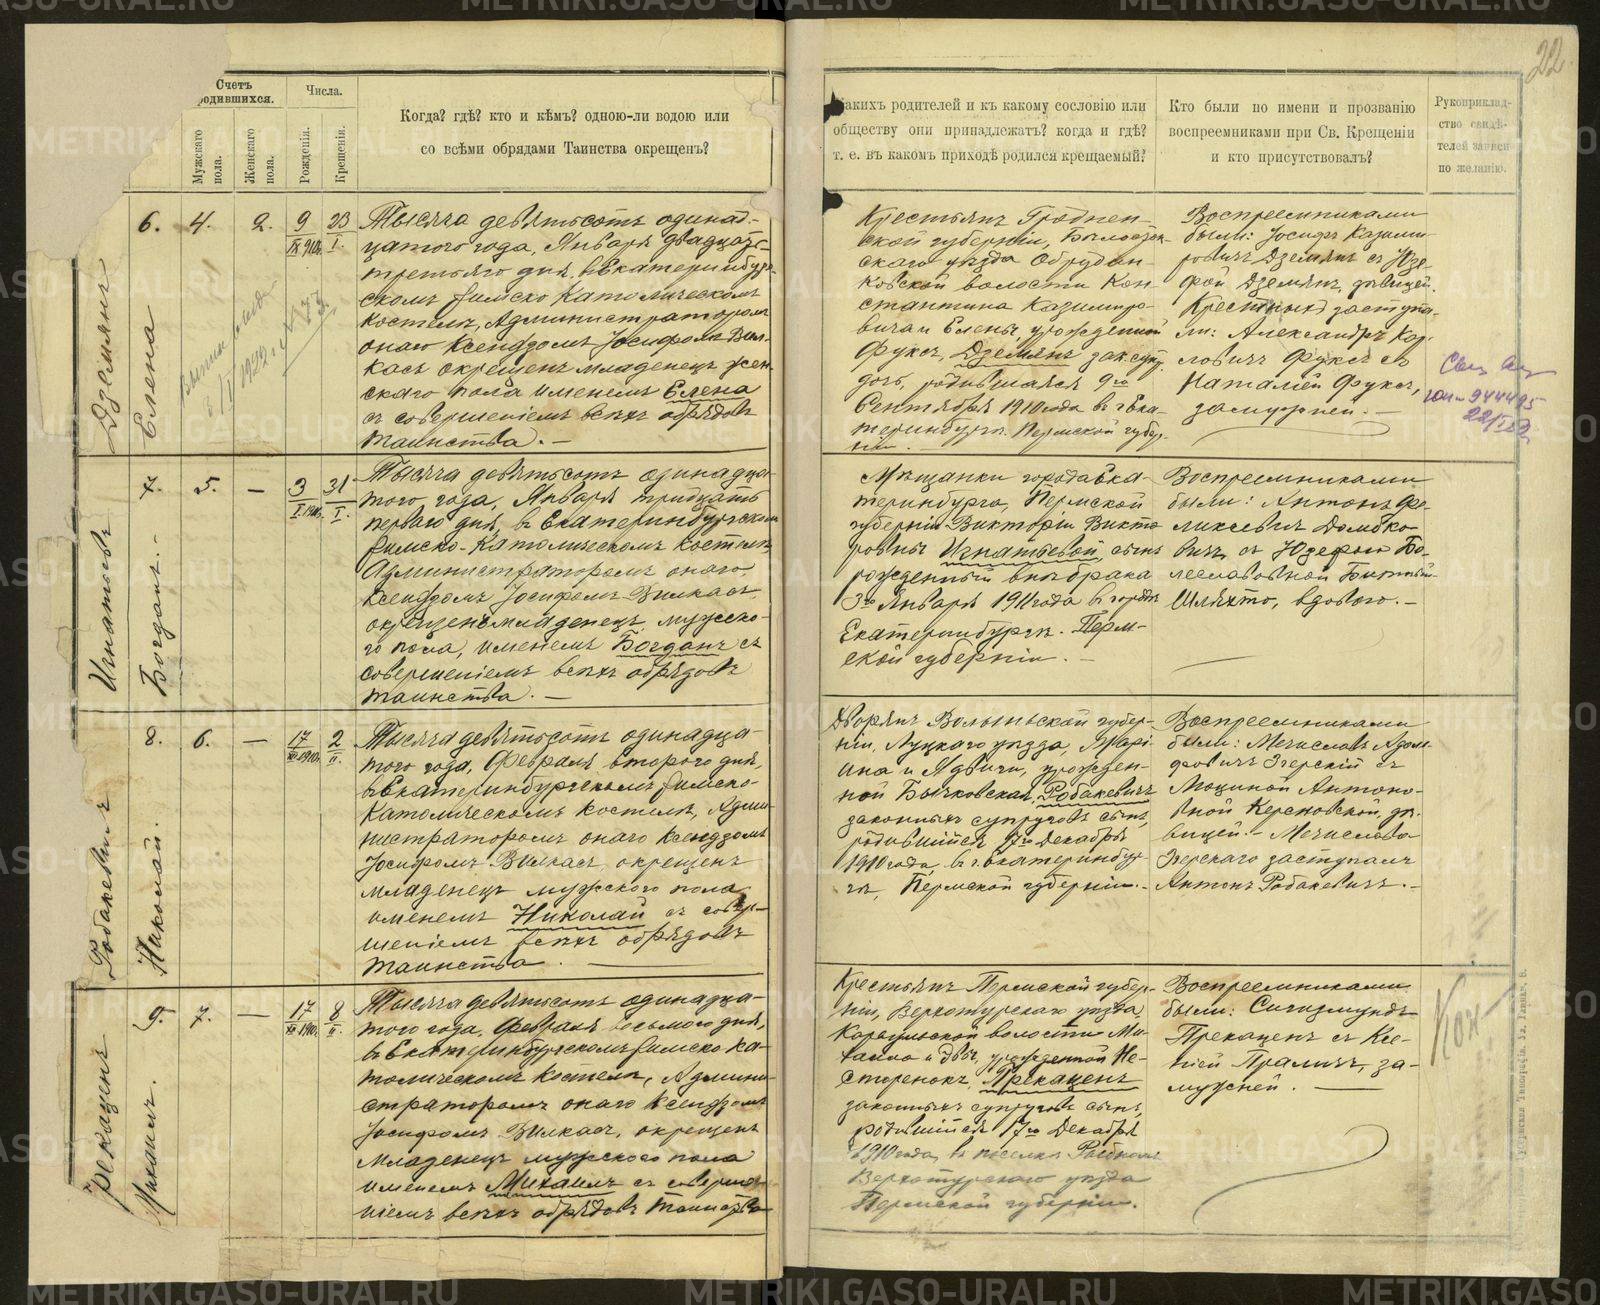 22.
Счетъ
родившихся.
Числа.
Мужскаго пола.
Женскаго пола.
Рожденія.
Крещенія.
Когда? гдѣ? кто и кѣмъ? одною-ли водою или
со всѣми обрядами Таинства окрещенъ?
Какихъ родителей и къ какому сословію или
обществу они принадлежатъ? когда и гдѣ?
т. е. въ какомъ приходѣ родился крещаемый?
Кто были по имени и прозванію
воспреемниками при Св. Крещеніи
и кто присутствовалъ?
Рукоприклад-
ство свидѣ-
телей записи
по желанію.
Дземянъ
Елена
6. 4. 2. 9/IX 910. 23/I.
Тысяча девятьсотъ одинад-
цатого года, Января двадцать
третьяго дня, въ Екатеринбург-
скомъ Римско Католическомъ
костелѣ, Администраторомъ
онаго Ксендзомъ Іосифомъ Вил-
касъ окрещенъ младенецъ жен-
скаго пола именемъ Елена
съ совершеніемъ всѣхъ обрядовъ
таинства. —
Крестьянъ Гроднен-
ской губерніи, Бѣлосток-
скаго уѣзда
ковской волости Кон-
стантина Казимиро-
вича и Елены, урожденной
Фуксъ, Дземянъ зак. супр.
дочь, родившаяся 9го
Сентября 1910 года в г. Ека-
теринбургѣ. Пермской губер-
ніи. —
Воспреемниками
были: Іосифъ Казими-
ровичъ Дземянъ съ Юзе-
фой Дземянъ, дѣвицей.
Крестныхъ заступа-
ли: Александръ Кар-
ловичъ Фуксъ съ
Наталіей Фуксъ,
замужней. —
944495
Игнатьевъ
Богданъ. —
7. 5. — 3/I 1911. 31/I.
Тысяча девятьсотъ одинадца-
того года, Января тридцать
перваго дня, въ Екатеринбургскомъ
Римско-Католическомъ костелѣ
Администраторомъ онаго,
Ксендзомъ Іосифомъ Вилкасъ,
окрещенъ младенецъ мужско-
го пола, именемъ Богданъ съ
совершеніемъ всѣхъ обрядовъ
таинства. —
Мѣщанки города Ека-
теринбурга, Пермской
губерніи Викторіи Викто-
ровны Игнатьевой, сынъ
рожденный внѣ брака
3го Января 1911 года въ городѣ
Екатеринбургѣ. Перм-
ской губерніи. —
Воспреемниками
были: Антонъ Фе-
ликсовичъ Домбко-
вичъ съ Юзефой Бо-
леславовной
Шляхто, вдовою. —
Робакевичъ
Николай.
8. 6. — 17/XII 1910. 2/II.
Тысяча девятьсотъ одинадца-
того года, Февраля второго дня,
въ Екатеринбургскомъ Римско-
Католическомъ костелѣ, Адми-
нистраторомъ онаго Ксендзомъ
Іосифомъ Вилкасъ, окрещенъ
младенецъ мужского пола
именемъ Николай съ совер-
шеніемъ всѣхъ обрядовъ
таинства. —
Дворянъ Волынской губер-
ніи, Луцкаго уѣзда, Марі-
ана и Ядвиги, урожден-
ной Бычковская, Робакевичъ
законныхъ супруговъ сынъ,
родившійся 17го Декабря
1910 года, въ г. Екатеринбур-
гѣ, Пермской губерніи. —
Воспреемниками
были: Мечиславъ Адоль-
фовичъ Згерскій съ
Люциной Антоно-
вной Керсновской, дѣ-
вицей. — Мечислава
Згерскаго заступалъ
Антонъ Робакевичъ. —
Прекаценъ
Михаилъ.
9. 7. — 17/XII 1910. 8/II.
Тысяча девятьсотъ одинадца-
того года, Февраля восьмого дня,
въ Екатеринбургскомъ Римско Ка-
толическомъ костелѣ, Админи-
страторомъ онаго Ксендзомъ
Іосифомъ Вилкасъ, окрещенъ
младенецъ мужского пола
именемъ Михаилъ съ соверше-
ніемъ всѣхъ обрядовъ таинства
Крестьянъ Пермской губер-
ніи, Верхотурскаго уѣзда,
Караульской волости Ми-
хаила и Евы, урожденной Не-
сторенокъ, Прекаценъ
законныхъ супруговъ сынъ,
родившійся 17го Декабря
1910 года, въ поселкѣ Рыбномъ
Верхотурскаго уѣзда
Пермской губерніи.
Воспреемниками
были: Сигизмундъ
Прекаценъ съ Ксе-
ніей Праличъ, за-
мужней. —
METRIKI.GASO-URAL.RU